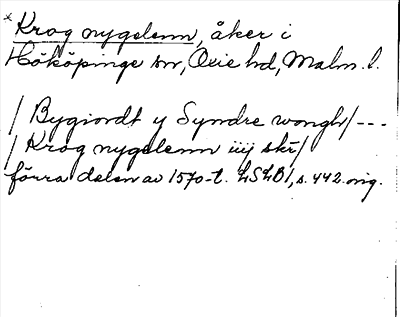 * Krog nygelenn, åker i
Hököpinge sn, Oxie hd, Malm. l.
/ Bygiordt y Syndre wongh / ---
/ Krog nygelenn iiij skr /
förra delen av 1570-t. LSLB1, s. 442. orig.